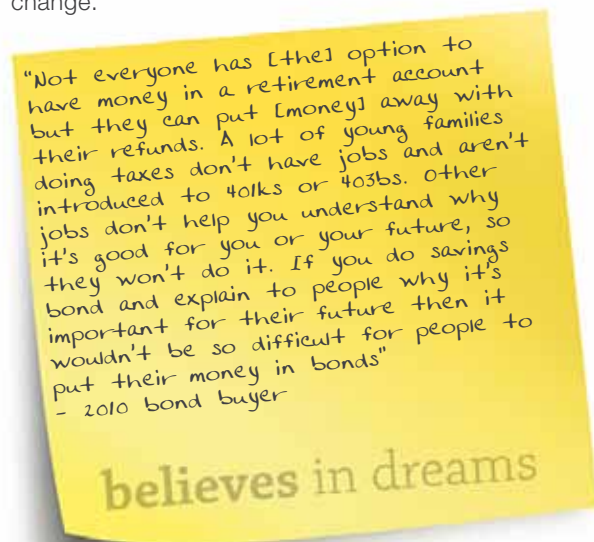 change.
"Not everyone has [the] option to
have money in a retirement account
but they can put [money] away with
their refunds. A lot of young families
doing taxes don't have jobs and aren't
introduced to 401ks or 403bs. Other
jobs don't help you understand why
it's good for you or your future, so
they won't do it. If you do savings
bond and explain to people why it's
important for their future then it
wouldn't be so difficult for people to
put their money in bonds"
- 2010 bond buyer
believes in dreams